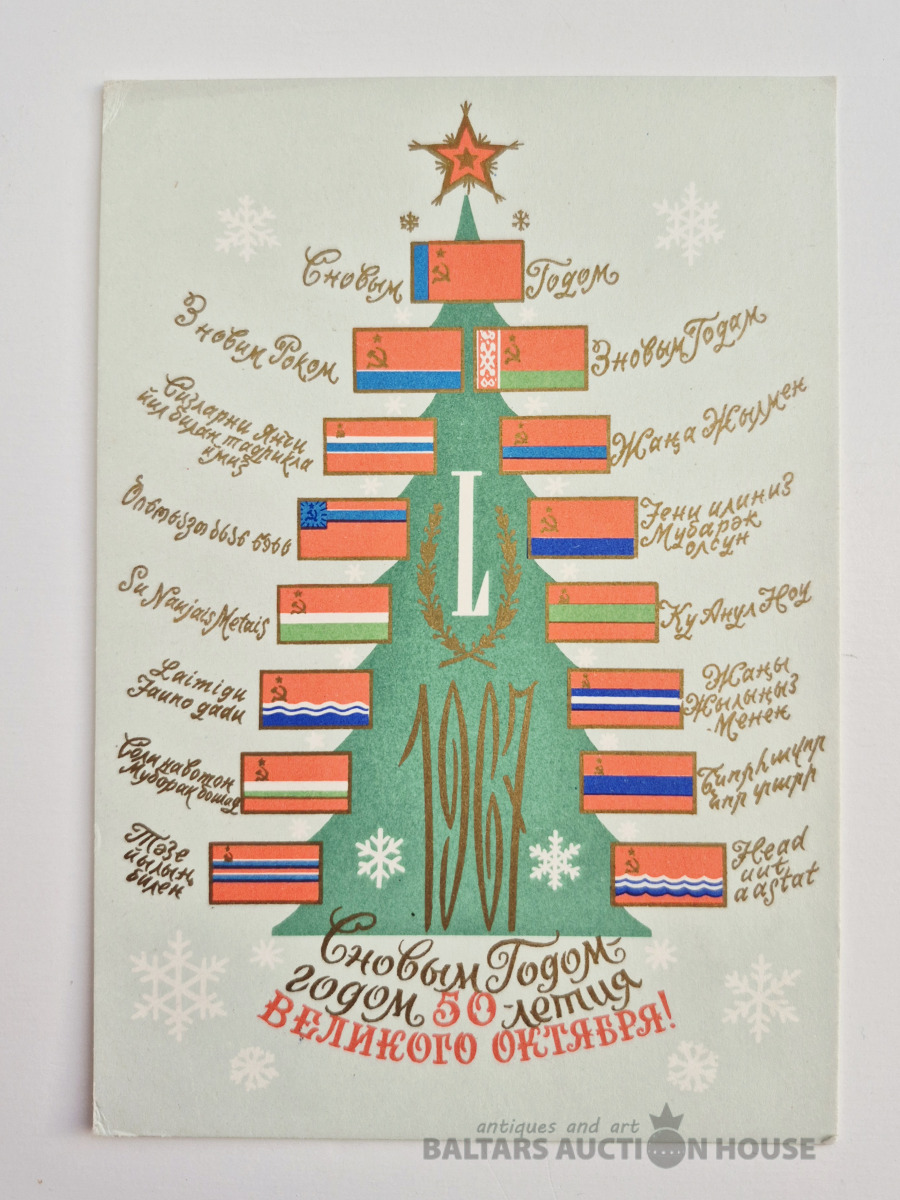 С новым Годом
З новим Роком
З новым Годам
Сизларни Янги
йил билан табрикла
ймиз
Жаңа Жылмен
გილოცავთ ახალ წელს
Јени илиниз
Мубарәк
олсун
Su Naujais Metais
Ку Анул Ноу
Laimigu
Jauno gadu
Жаңы
Жылыңыз
Менен
Соли навотон
Муборак бошад
Շնորհավոր
նոր տարի
Тәзе
йылың
билен
Head
uut
aastat
L
1967
С новым Годом-
годом 50-летия
ВЕЛИКОГО ОКТЯБРЯ!
antiques and art
BALTARS AUCTION HOUSE